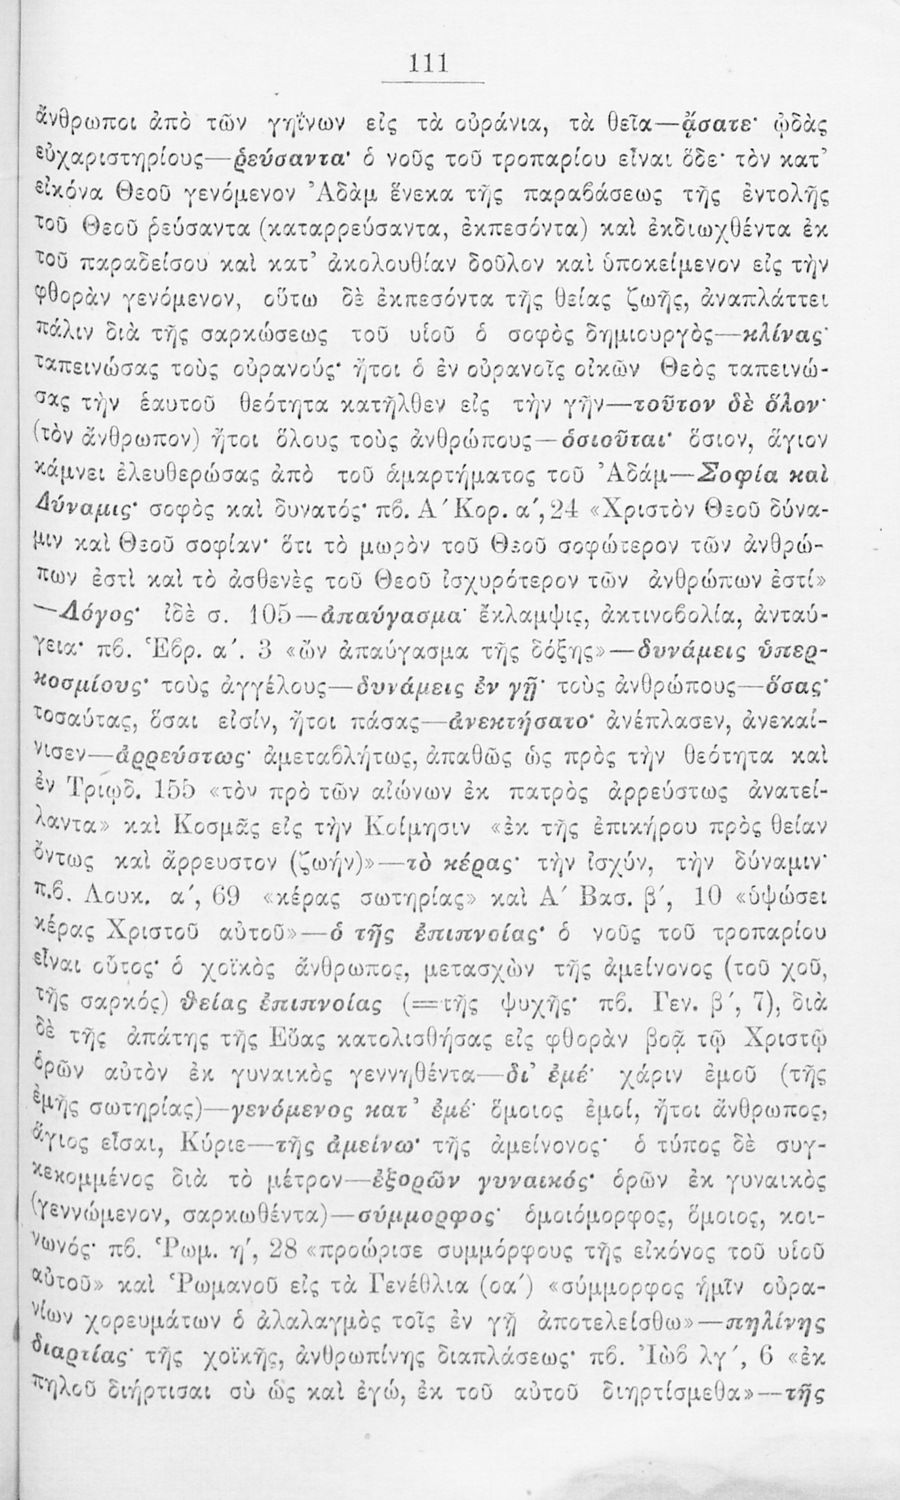 111
ἄνθρωποι ἀπὸ τῶν γηΐνων εἰς τὰ οὐράνια, τὰ θεῖα—ᾄσατε· ᾠδὰς
εὐχαριστηρίους—ῥεύσαντα· ὁ νοῦς τοῦ τροπαρίου εἶναι ὅδε· τὸν κατ’
εἰκόνα Θεοῦ γενόμενον Ἀδὰμ ἕνεκα τῆς παραβάσεως τῆς ἐντολῆς
τοῦ Θεοῦ ῥεύσαντα (καταρρεύσαντα, ἐκπεσόντα) καὶ ἐκδιωχθέντα ἐκ
τοῦ παραδείσου καὶ κατ’ ἀκολουθίαν δοῦλον καὶ ὑποκείμενον εἰς τὴν
φθορὰν γενόμενον, οὕτω δὲ ἐκπεσόντα τῆς θείας ζωῆς, ἀναπλάττει
πάλιν διὰ τῆς σαρκώσεως τοῦ υἱοῦ ὁ σοφὸς δημιουργὸς—κλίνας·
ταπεινώσας τοὺς οὐρανούς· ἤτοι ὁ ἐν οὐρανοῖς οἰκῶν Θεὸς ταπεινώ-
σας τὴν ἑαυτοῦ θεότητα κατῆλθεν εἰς τὴν γῆν—τοῦτον δὲ ὅλον·
(τὸν ἄνθρωπον) ἤτοι ὅλους τοὺς ἀνθρώπους—ὁσιοῦται· ὅσιον, ἅγιον
κάμνει ἐλευθερώσας ἀπὸ τοῦ ἁμαρτήματος τοῦ Ἀδάμ—Σοφία καὶ
Δύναμις· σοφὸς καὶ δυνατός· πβ. Α΄ Κορ. α΄, 24 «Χριστὸν Θεοῦ δύνα-
μιν καὶ Θεοῦ σοφίαν· ὅτι τὸ μωρὸν τοῦ Θεοῦ σοφώτερον τῶν ἀνθρώ-
πων ἐστὶ καὶ τὸ ἀσθενὲς τοῦ Θεοῦ ἰσχυρότερον τῶν ἀνθρώπων ἐστί»
—Λόγος· ἰδὲ σ. 105—ἀπαύγασμα· ἔκλαμψις, ἀκτινοβολία, ἀνταύ-
γεια· πβ. Ἑβρ. α΄. 3 «ὢν ἀπαύγασμα τῆς δόξης»—δυνάμεις ὑπερ-
κοσμίους· τοὺς ἀγγέλους—δυνάμεις ἐν γῇ· τοὺς ἀνθρώπους—ὅσας·
τοσαύτας, ὅσαι εἰσίν, ἤτοι πάσας—ἀνεκτήσατο· ἀνέπλασεν, ἀνεκαί-
νισεν—ἀρρεύστως· ἀμεταβλήτως, ἀπαθῶς ὡς πρὸς τὴν θεότητα καὶ
ἐν Τριῳδ. 155 «τὸν πρὸ τῶν αἰώνων ἐκ πατρὸς ἀρρεύστως ἀνατεί-
λαντα» καὶ Κοσμᾶς εἰς τὴν Κοίμησιν «ἐκ τῆς ἐπικήρου πρὸς θείαν
ὄντως καὶ ἄρρευστον (ζωήν)»—τὸ κέρας· τὴν ἰσχύν, τὴν δύναμιν·
π.β. Λουκ. α΄, 69 «κέρας σωτηρίας» καὶ Α΄ Βασ. β΄, 10 «ὑψώσει
κέρας Χριστοῦ αὐτοῦ»—ὁ τῆς ἐπιπνοίας· ὁ νοῦς τοῦ τροπαρίου
εἶναι οὗτος· ὁ χοϊκὸς ἄνθρωπος, μετασχὼν τῆς ἀμείνονος (τοῦ χοῦ,
τῆς σαρκός) θείας ἐπιπνοίας (=τῆς ψυχῆς· πβ. Γεν. β΄, 7), διὰ
δὲ τῆς ἀπάτης τῆς Εὔας κατολισθήσας εἰς φθορὰν βοᾷ τῷ Χριστῷ
ὁρῶν αὐτὸν ἐκ γυναικὸς γεννηθέντα—δι’ ἐμέ· χάριν ἐμοῦ (τῆς
ἐμῆς σωτηρίας)—γενόμενος κατ’ ἐμέ· ὅμοιος ἐμοί, ἤτοι ἄνθρωπος,
ἅγιος εἶσαι, Κύριε—τῆς ἀμείνω· τῆς ἀμείνονος· ὁ τύπος δὲ συγ-
κεκομμένος διὰ τὸ μέτρον—ἐξορῶν γυναικός· ὁρῶν ἐκ γυναικὸς
(γεννώμενον, σαρκωθέντα)—σύμμορφος· ὁμοιόμορφος, ὅμοιος, κοι-
νωνός· πβ. Ῥωμ. η΄, 28 «προώρισε συμμόρφους τῆς εἰκόνος τοῦ υἱοῦ
αὐτοῦ» καὶ Ῥωμανοῦ εἰς τὰ Γενέθλια (οα΄) «σύμμορφος ἡμῖν οὐρα-
νίων χορευμάτων ὁ ἀλαλαγμὸς τοῖς ἐν γῇ ἀποτελείσθω»—πηλίνης
διαρτίας· τῆς χοϊκῆς, ἀνθρωπίνης διαπλάσεως· πβ. Ἰὼβ λγ΄, 6 «ἐκ
πηλοῦ διήρτισαι σὺ ὡς καὶ ἐγώ, ἐκ τοῦ αὐτοῦ διηρτίσμεθα»—τῆς